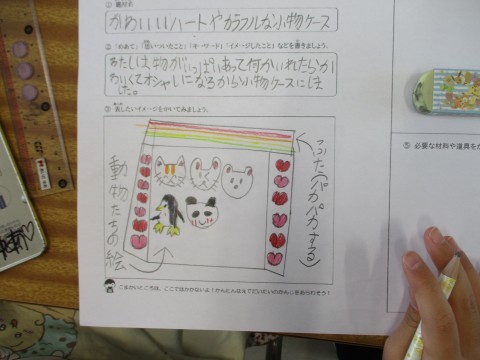 ① 題材名
かわいいハートやカラフルな小物ケース
②「めあて」「思いついたこと」「キーワード」「イメージしたこと」などを書きましょう。
わたしは、物がいっぱいあって何かいれたらか
わいくてオシャレになるから小物ケースにしま
した。
③ 表したいイメージをかいてみましょう。
ふた(パカパカする)
動物たちの絵
⑤ 必要な材料や道具を
こまかいところは、ここではかかないよ!かんたんなえでだいたいのかんじをあらわそう!